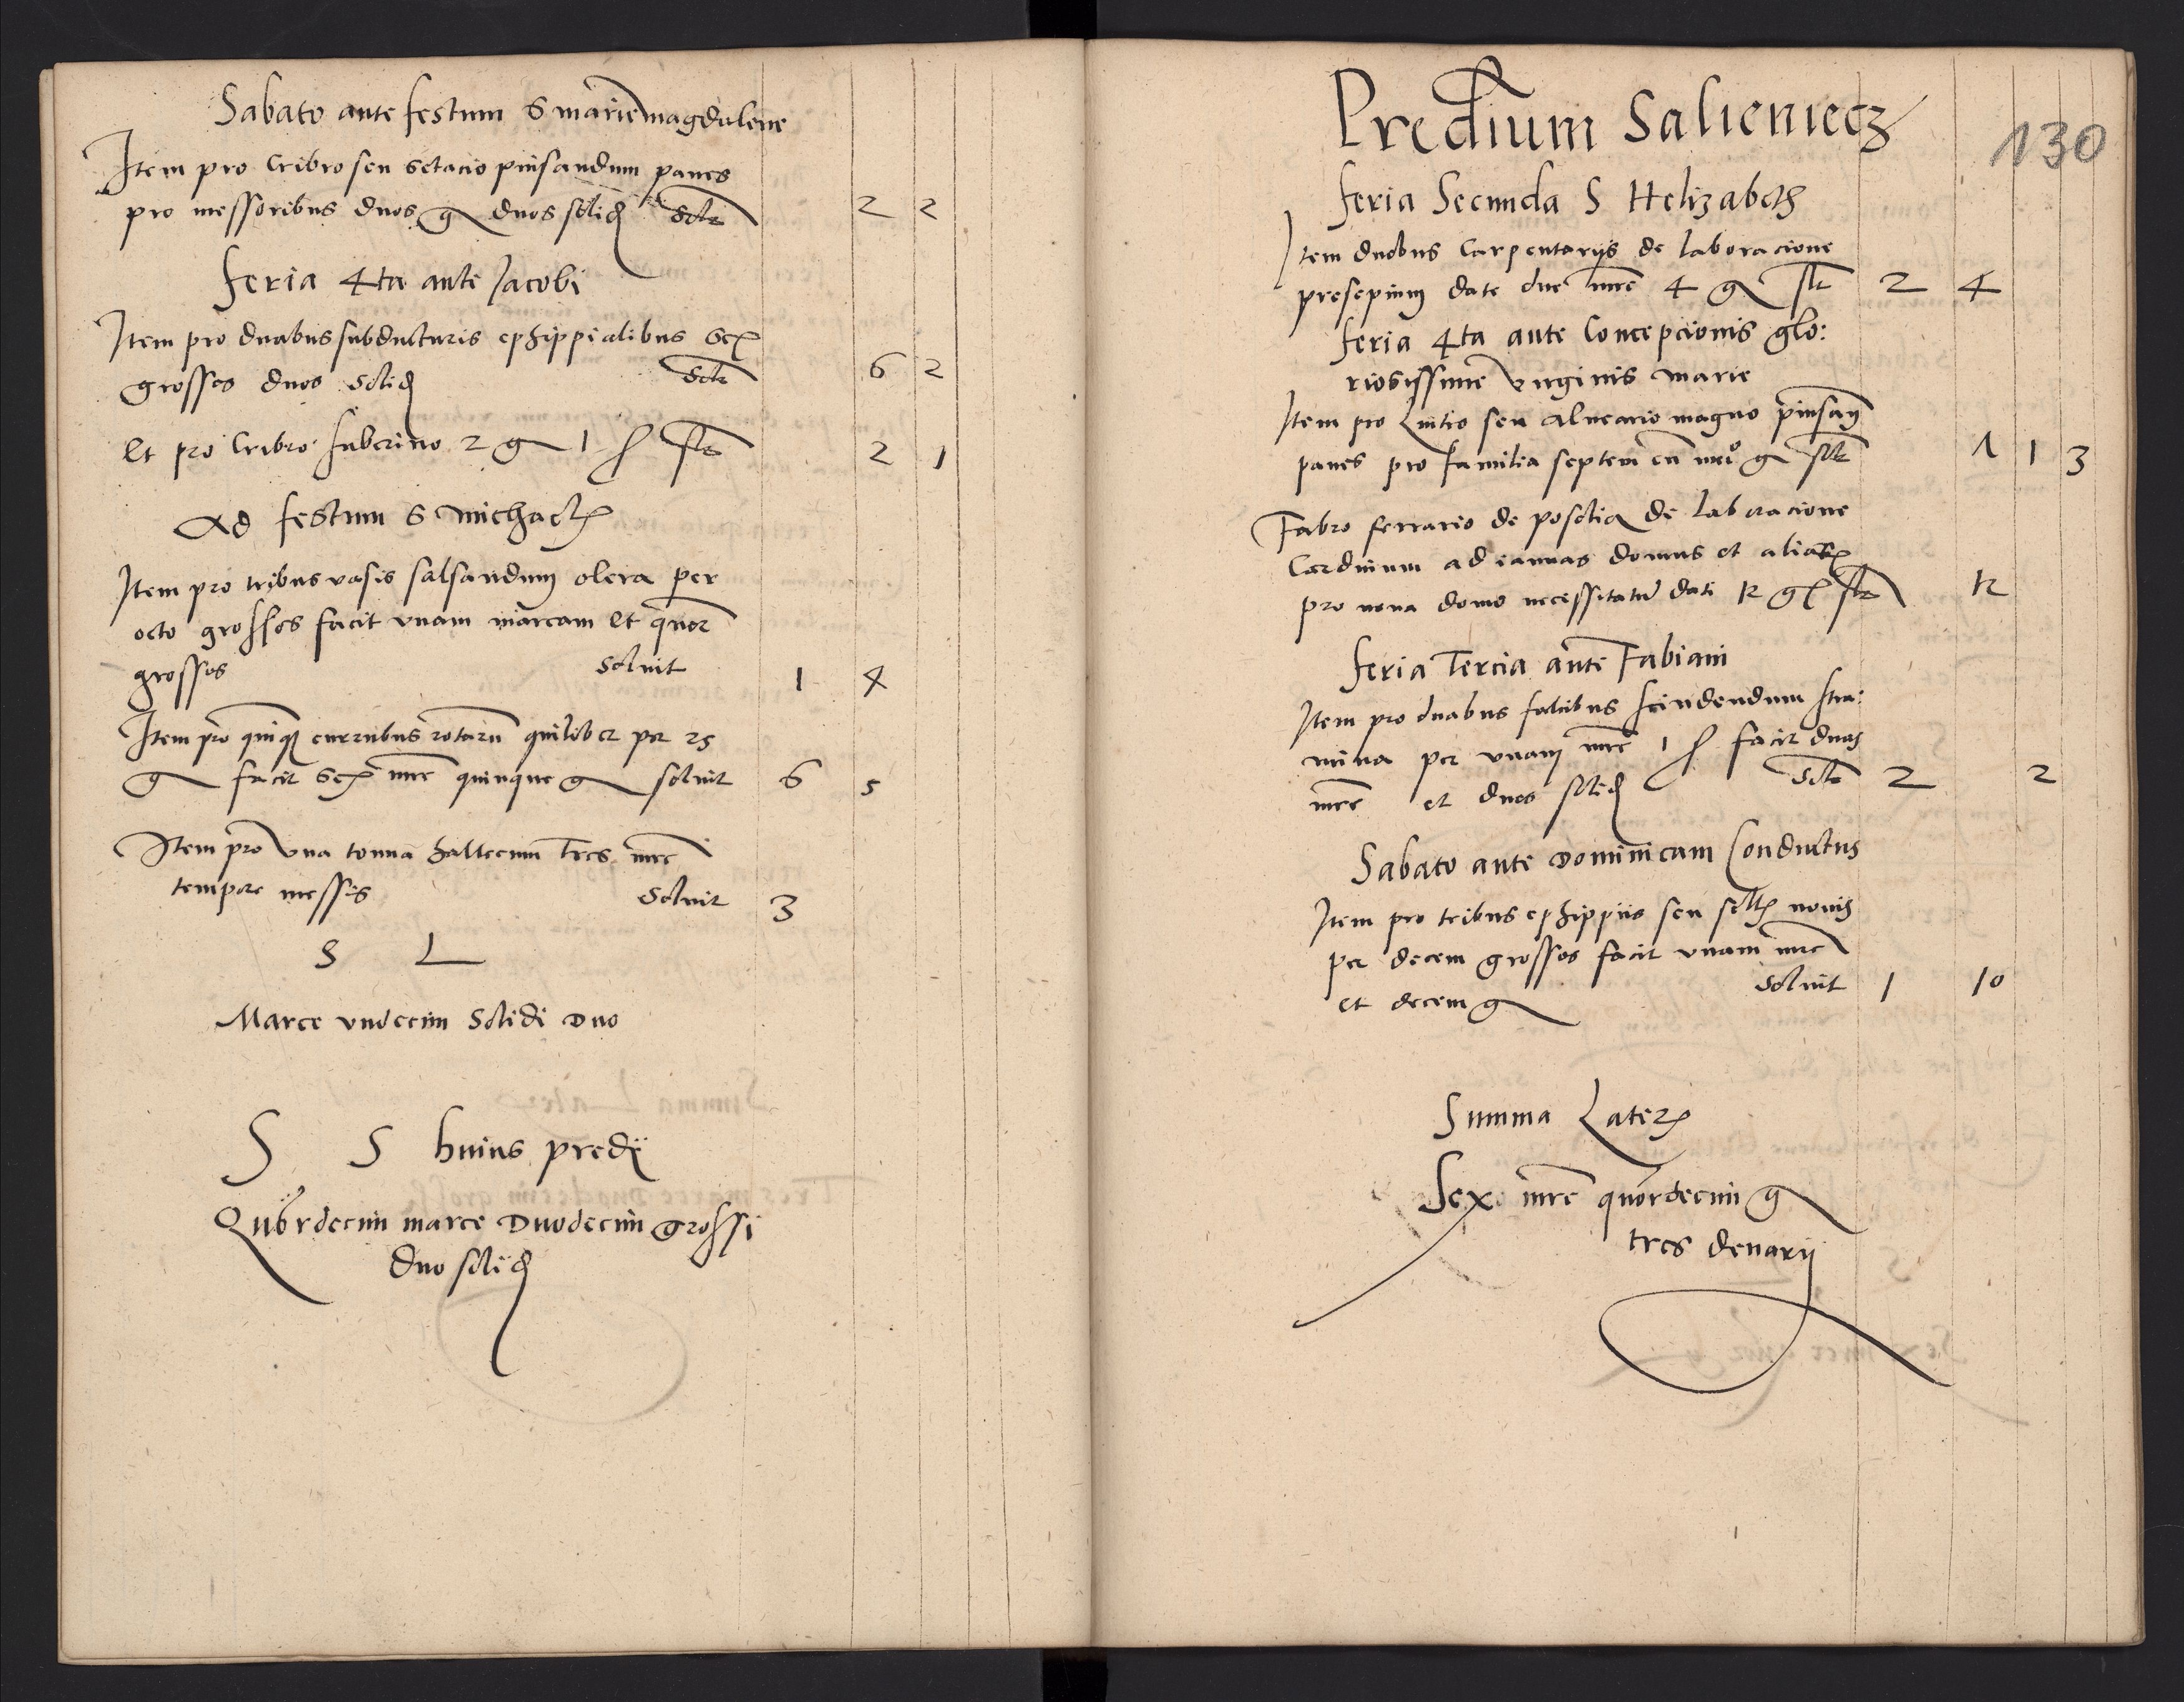 Sabato ante festum S mariemagdalene
Item pro Cribro seu setacio pinsandum panes
pro messoribus duos g duos solid solt 2 2
feria 4ta ante Jacobi
Item pro duabus subducturis ephippialibus sex
grosses duos solid solt 6 2
Et pro Cribro 2 g 1 s slt 2 1
Ad festum S michaelis
Item pro tribus vasis salsandum olera per
octo grosses facit vnam marcam et quor
grosses soluit 1 4
Item pro quinque curribus rotaru quilibet per 25
g facit sex mrc quinque g soluit 6 5
Item pro vna tonna hallecum tres mrc
tempore messis soluit 3
S L
Marce vndecim Solidi Duo
S S huius predij
Quordecim marce Duodecim grossi
duo solid
Predium Salieniecz
130
feria Secunda S Helizabeth
Item duobus Carpentarijs de laboracione
presepium date due mrc 4 g slt 2 4
feria 4ta ante Concepcionis glo:
riosissime virginis marie
Item pro seu alueario magno pinsan
panes pro familia septem cu g solt 1 3
Fabro ferrario de de laboracione
Cardinum ad ianuas domus et aliar
pro noua domo necessitatu dati 12 g slt 12
feria Tercia ante Fabiani
Item pro duabus falcibus scindendum stra:
mina per vnam mrc 1 s facit duas
mrc et duos solid solt 2 2
Sabato ante Dominicam Conductus
Item pro tribus ephippiis seu sellis nouis
per decem grosses facit vnam mrc
et decem g soluit 1 10
Summa Lateris
Sex mrc quordecim g
tres denarij